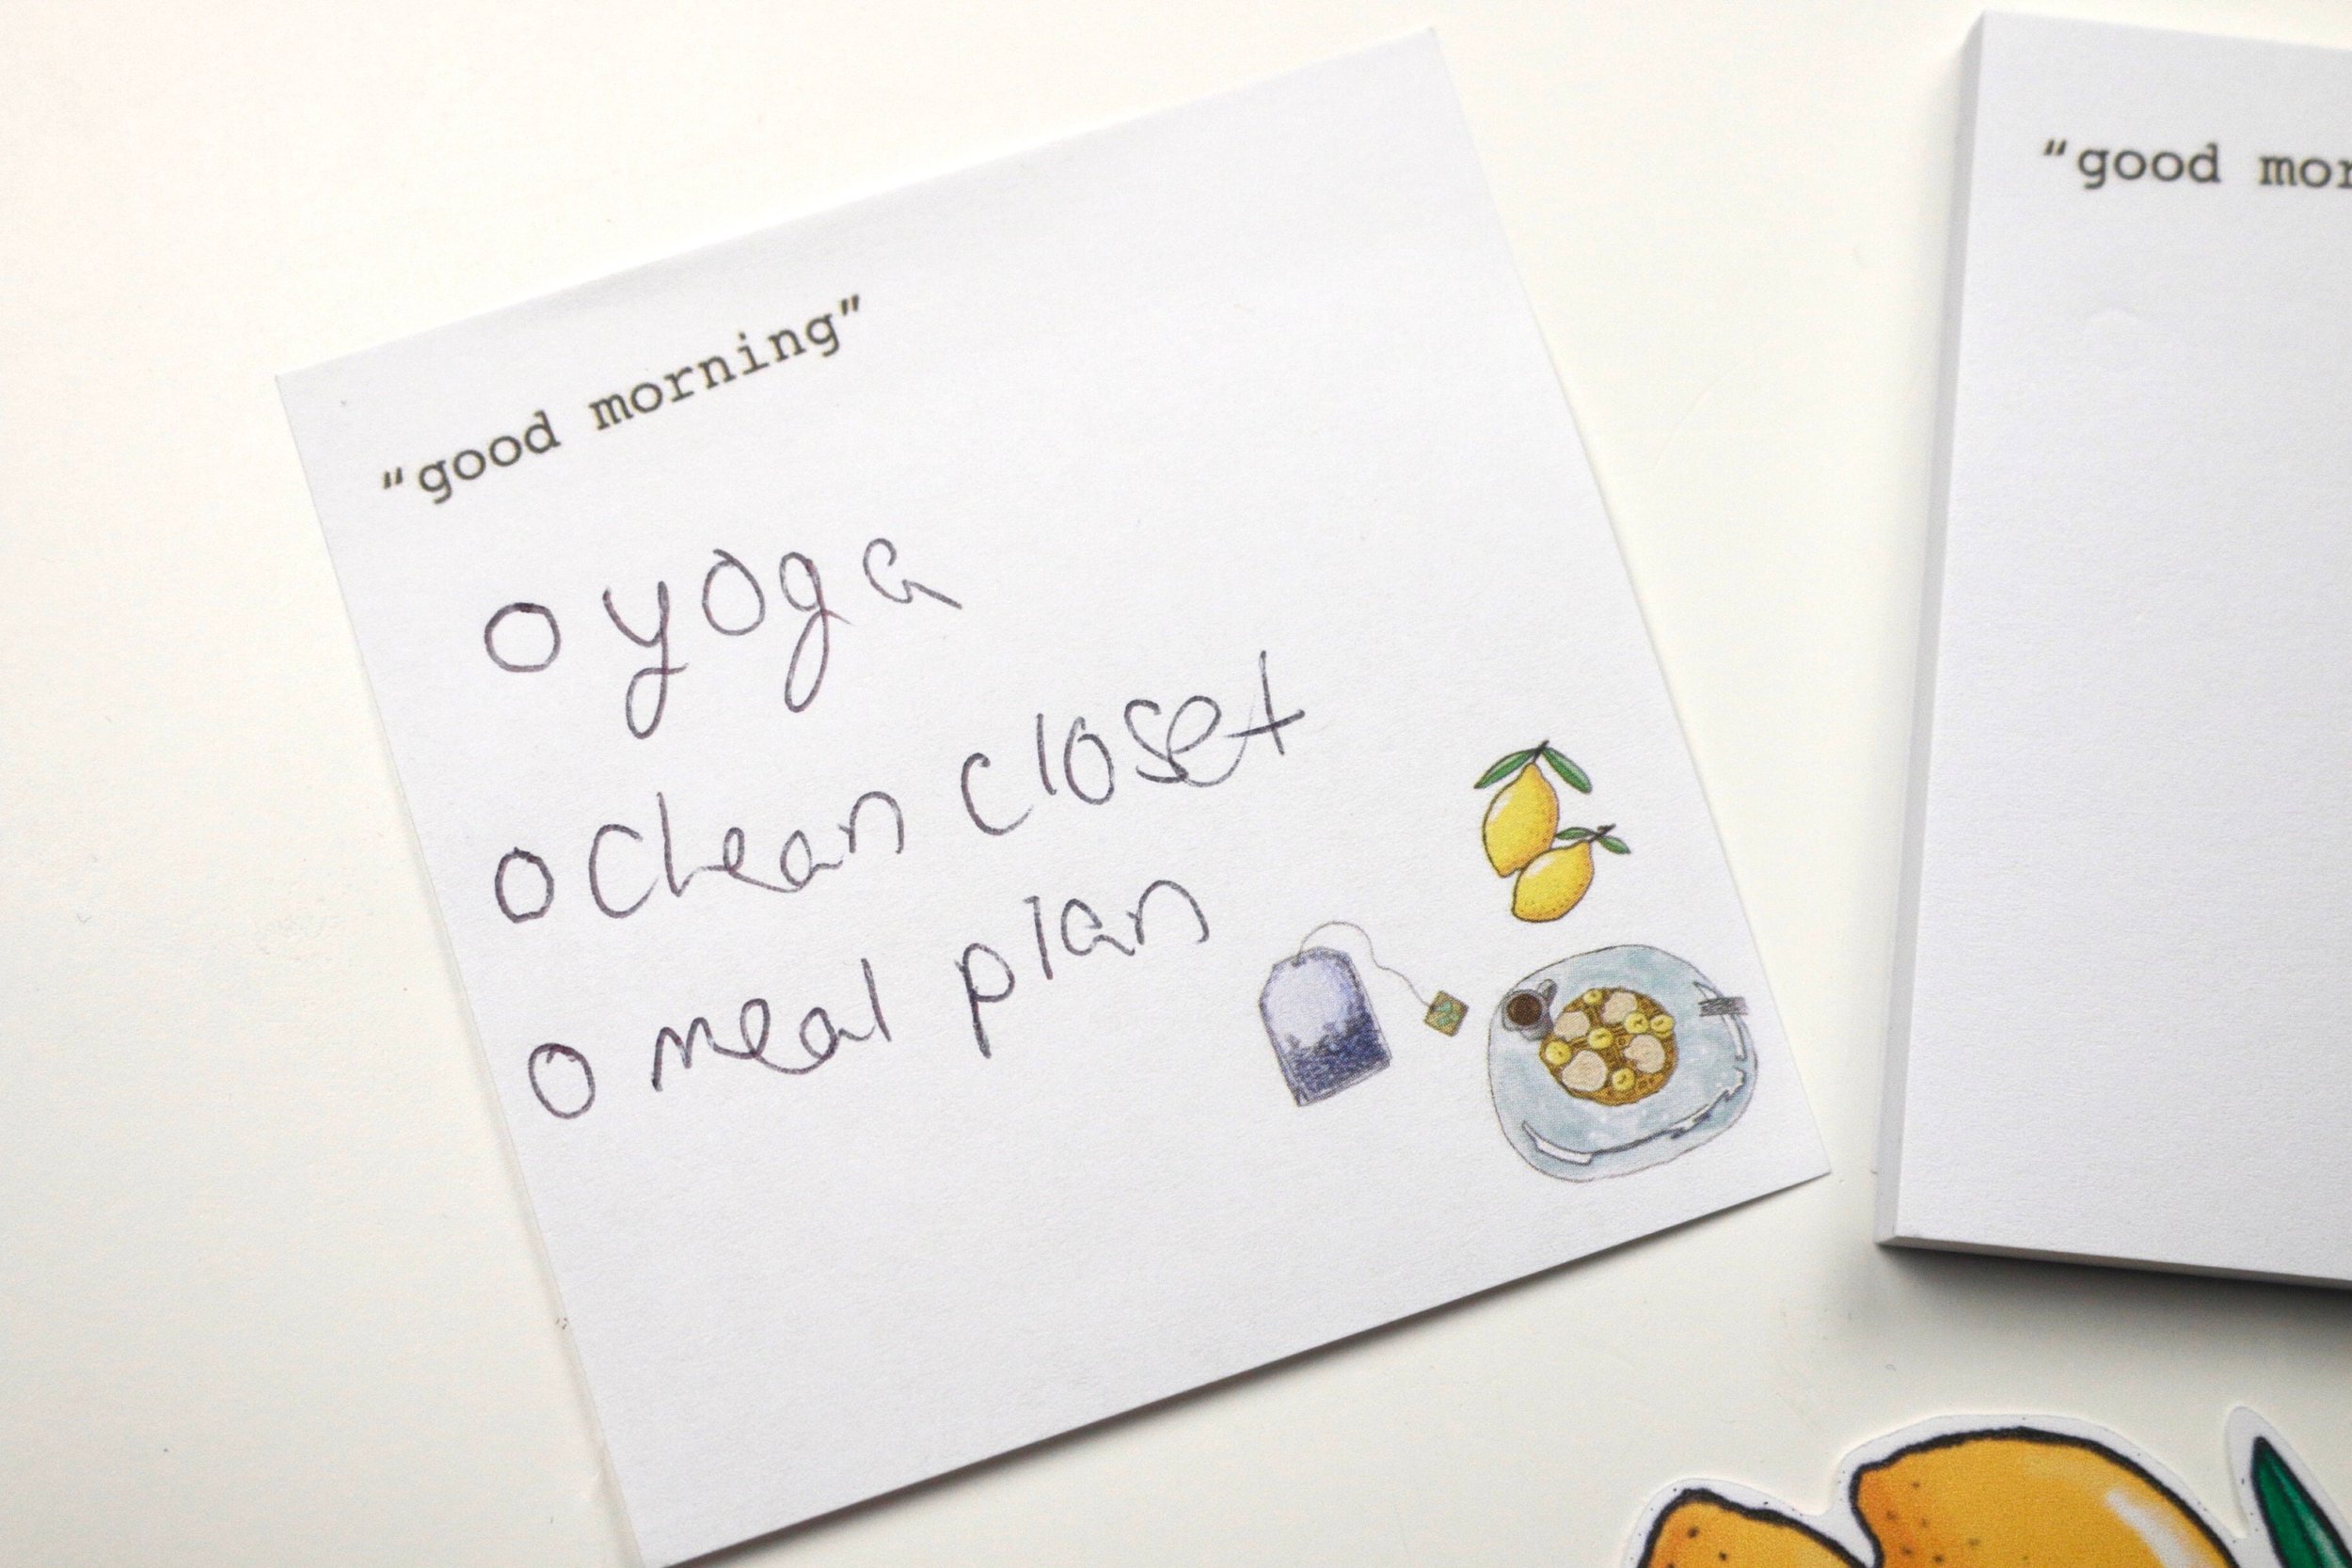 “good morning”
O yoga
O Clean closet
O meal plan
“good mor